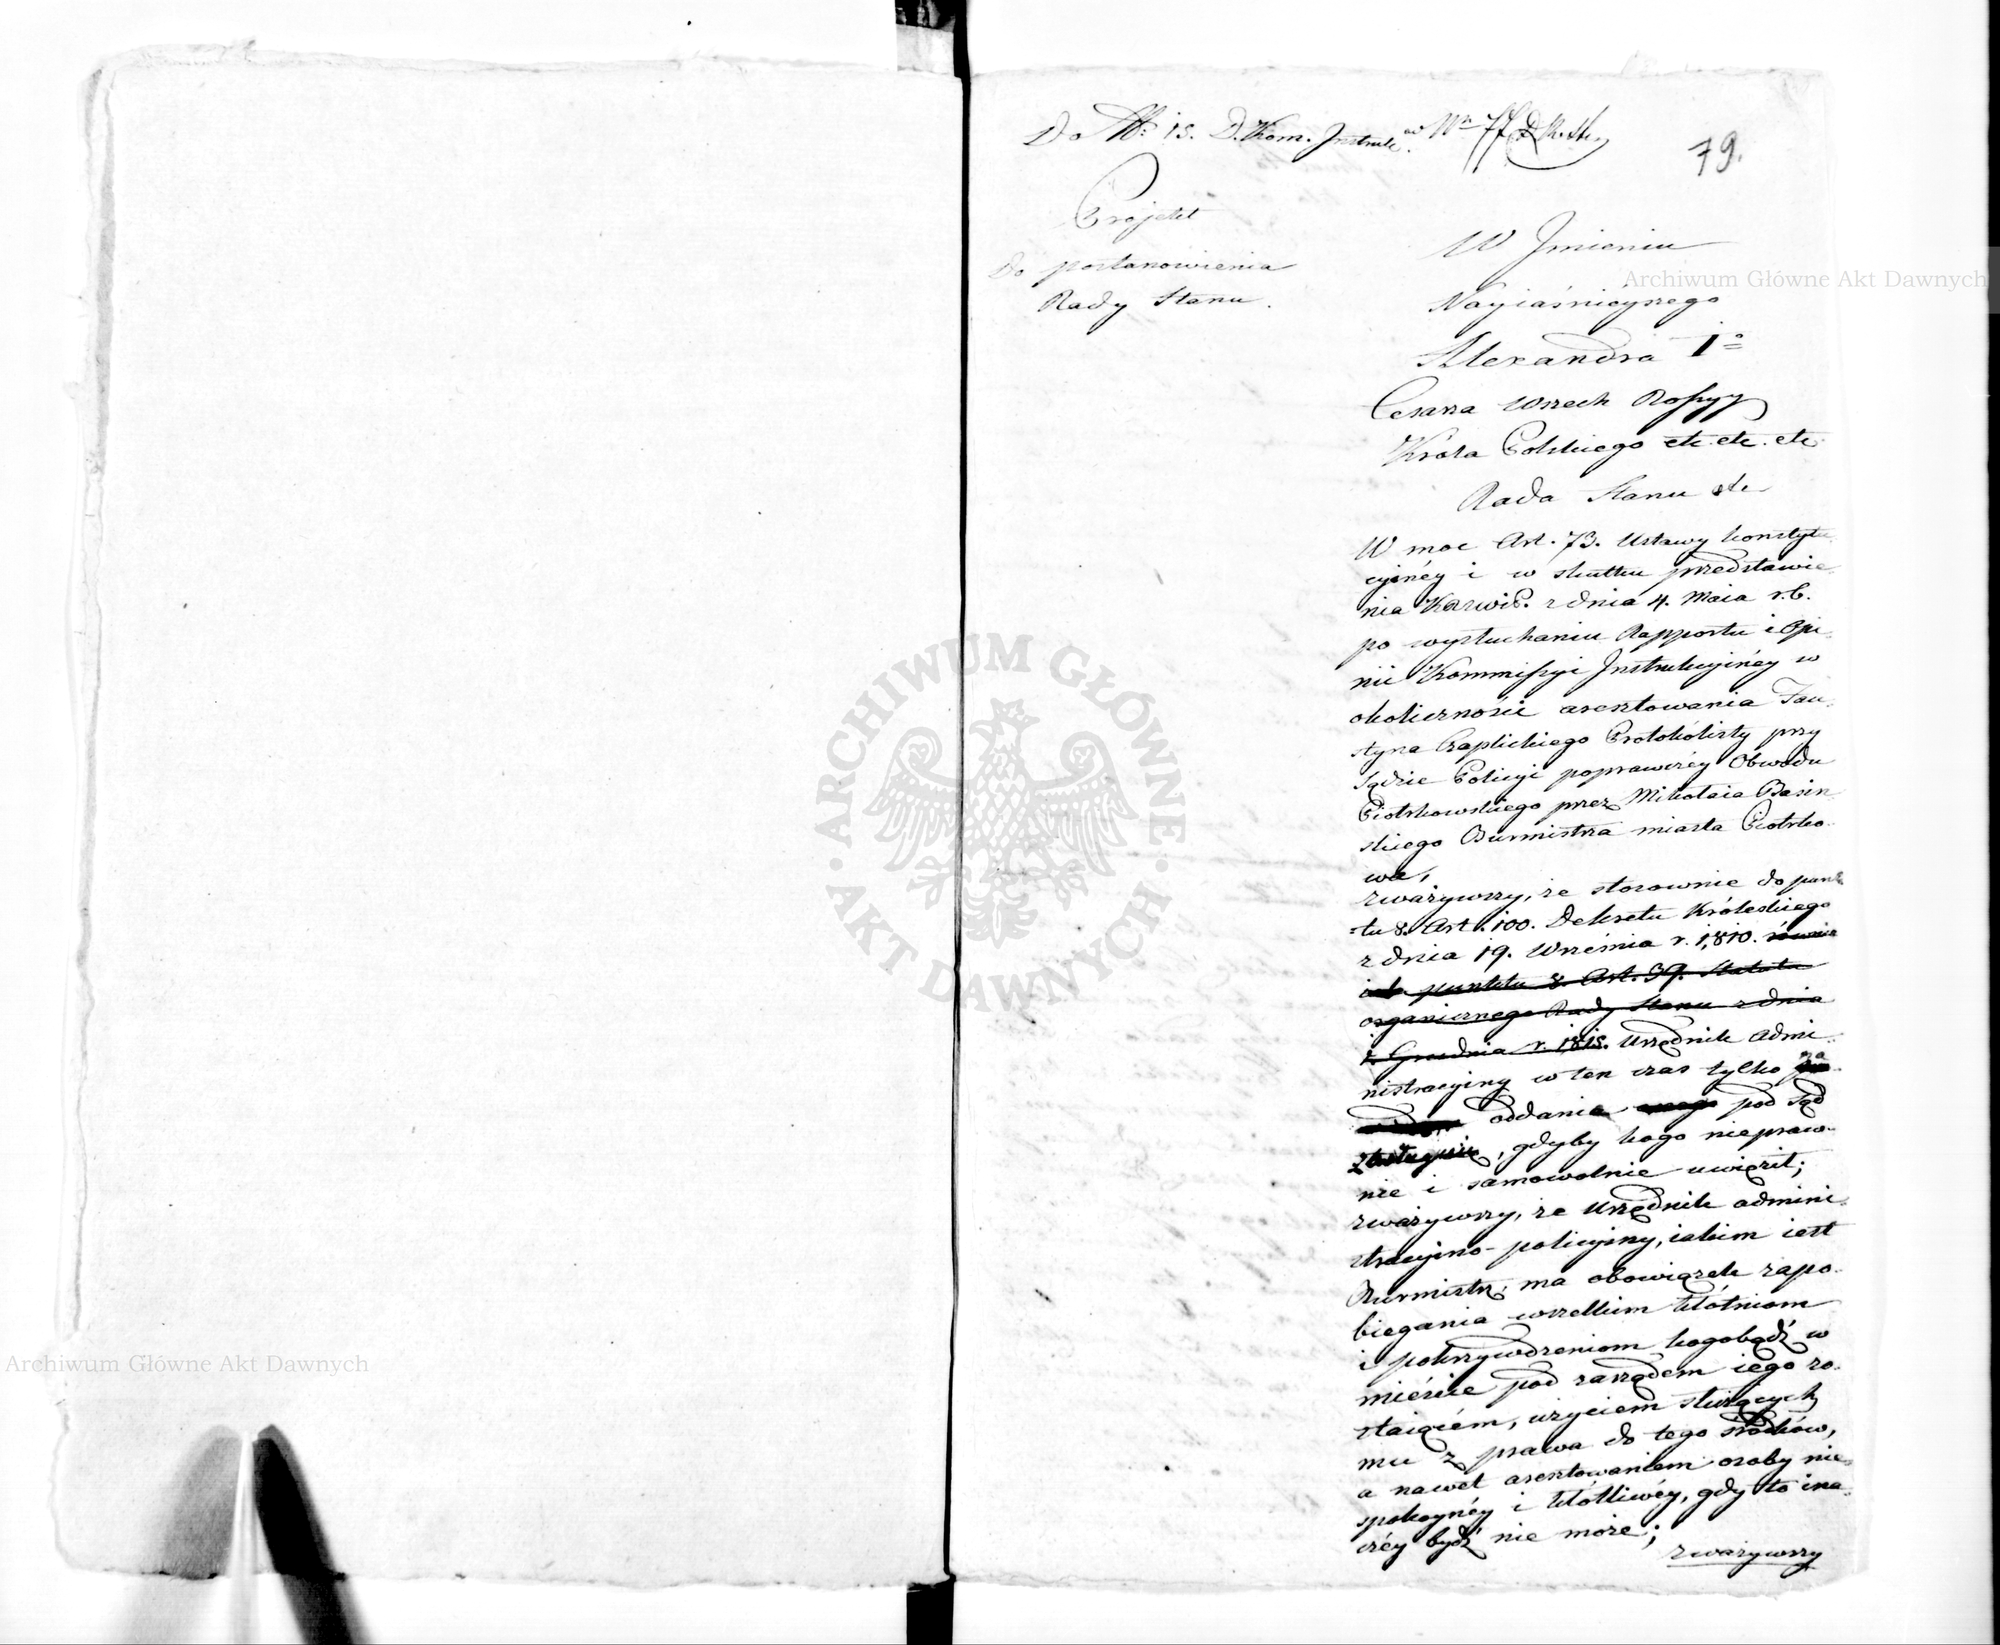 Do Nr. 15. D. Kom. Instruk.
79.
Projekt
do postanowienia
Rady Stanu.
W Jmieniu
Nayiaśnieyszego
Alexandra Iº
Cesarza Wszech Rossyy
Króla Polskiego etc. etc. etc.
Rada Stanu etc
W moc Art. 73. Ustawy konstytu-
cyjnéy i w skutku przedstawie-
nia z dnia 4. Maia r.b.
po wysłuchaniu Rapportu i Opi-
nii Kommissyi Jnstrukcyjnéy w
okoliczności aresztowania Fau-
styna Czaplickiego Protokólisty przy
Sądzie Policyi poprawczéy Obwodu
Piotrkowskiego przez Mikołaia Basin-
skiego Burmistrza miasta Piotrko-
wa,
zważywszy, że stosownie do punk-
tu 8. Art. 100. Dekretu Królewskiego
z dnia 19. Września r. 1,810. również
i do punktu 8. Art. 39. Statutu
organicznego Rady Stanu z dnia
1. Grudnia r. 1815. Urzędnik admi-
nistracyjny w ten czas tylko
oddania onego pod Sąd
, gdyby kogo niepraw-
nie i samowolnie uwięził;
zważywszy, że Urzędnik admini-
stracyjno-policyjny, iakim iest
Burmistrz, ma obowiązek zapo-
biegania wszelkim kłótniom
i pokrzywdzeniom kogobądź w
mieście pod zarządem iego zo-
staiącém, użyciem służących
mu z prawa do tego środków,
a nawet aresztowaniem osoby nie-
spokoynéy i kłótliwéy, gdy to ina-
czéy bydź nie może;
zważywszy
Archiwum Główne Akt Dawnych
Archiwum Główne Akt Dawnych
ARCHIWUM GŁÓWNE
AKT DAWNYCH